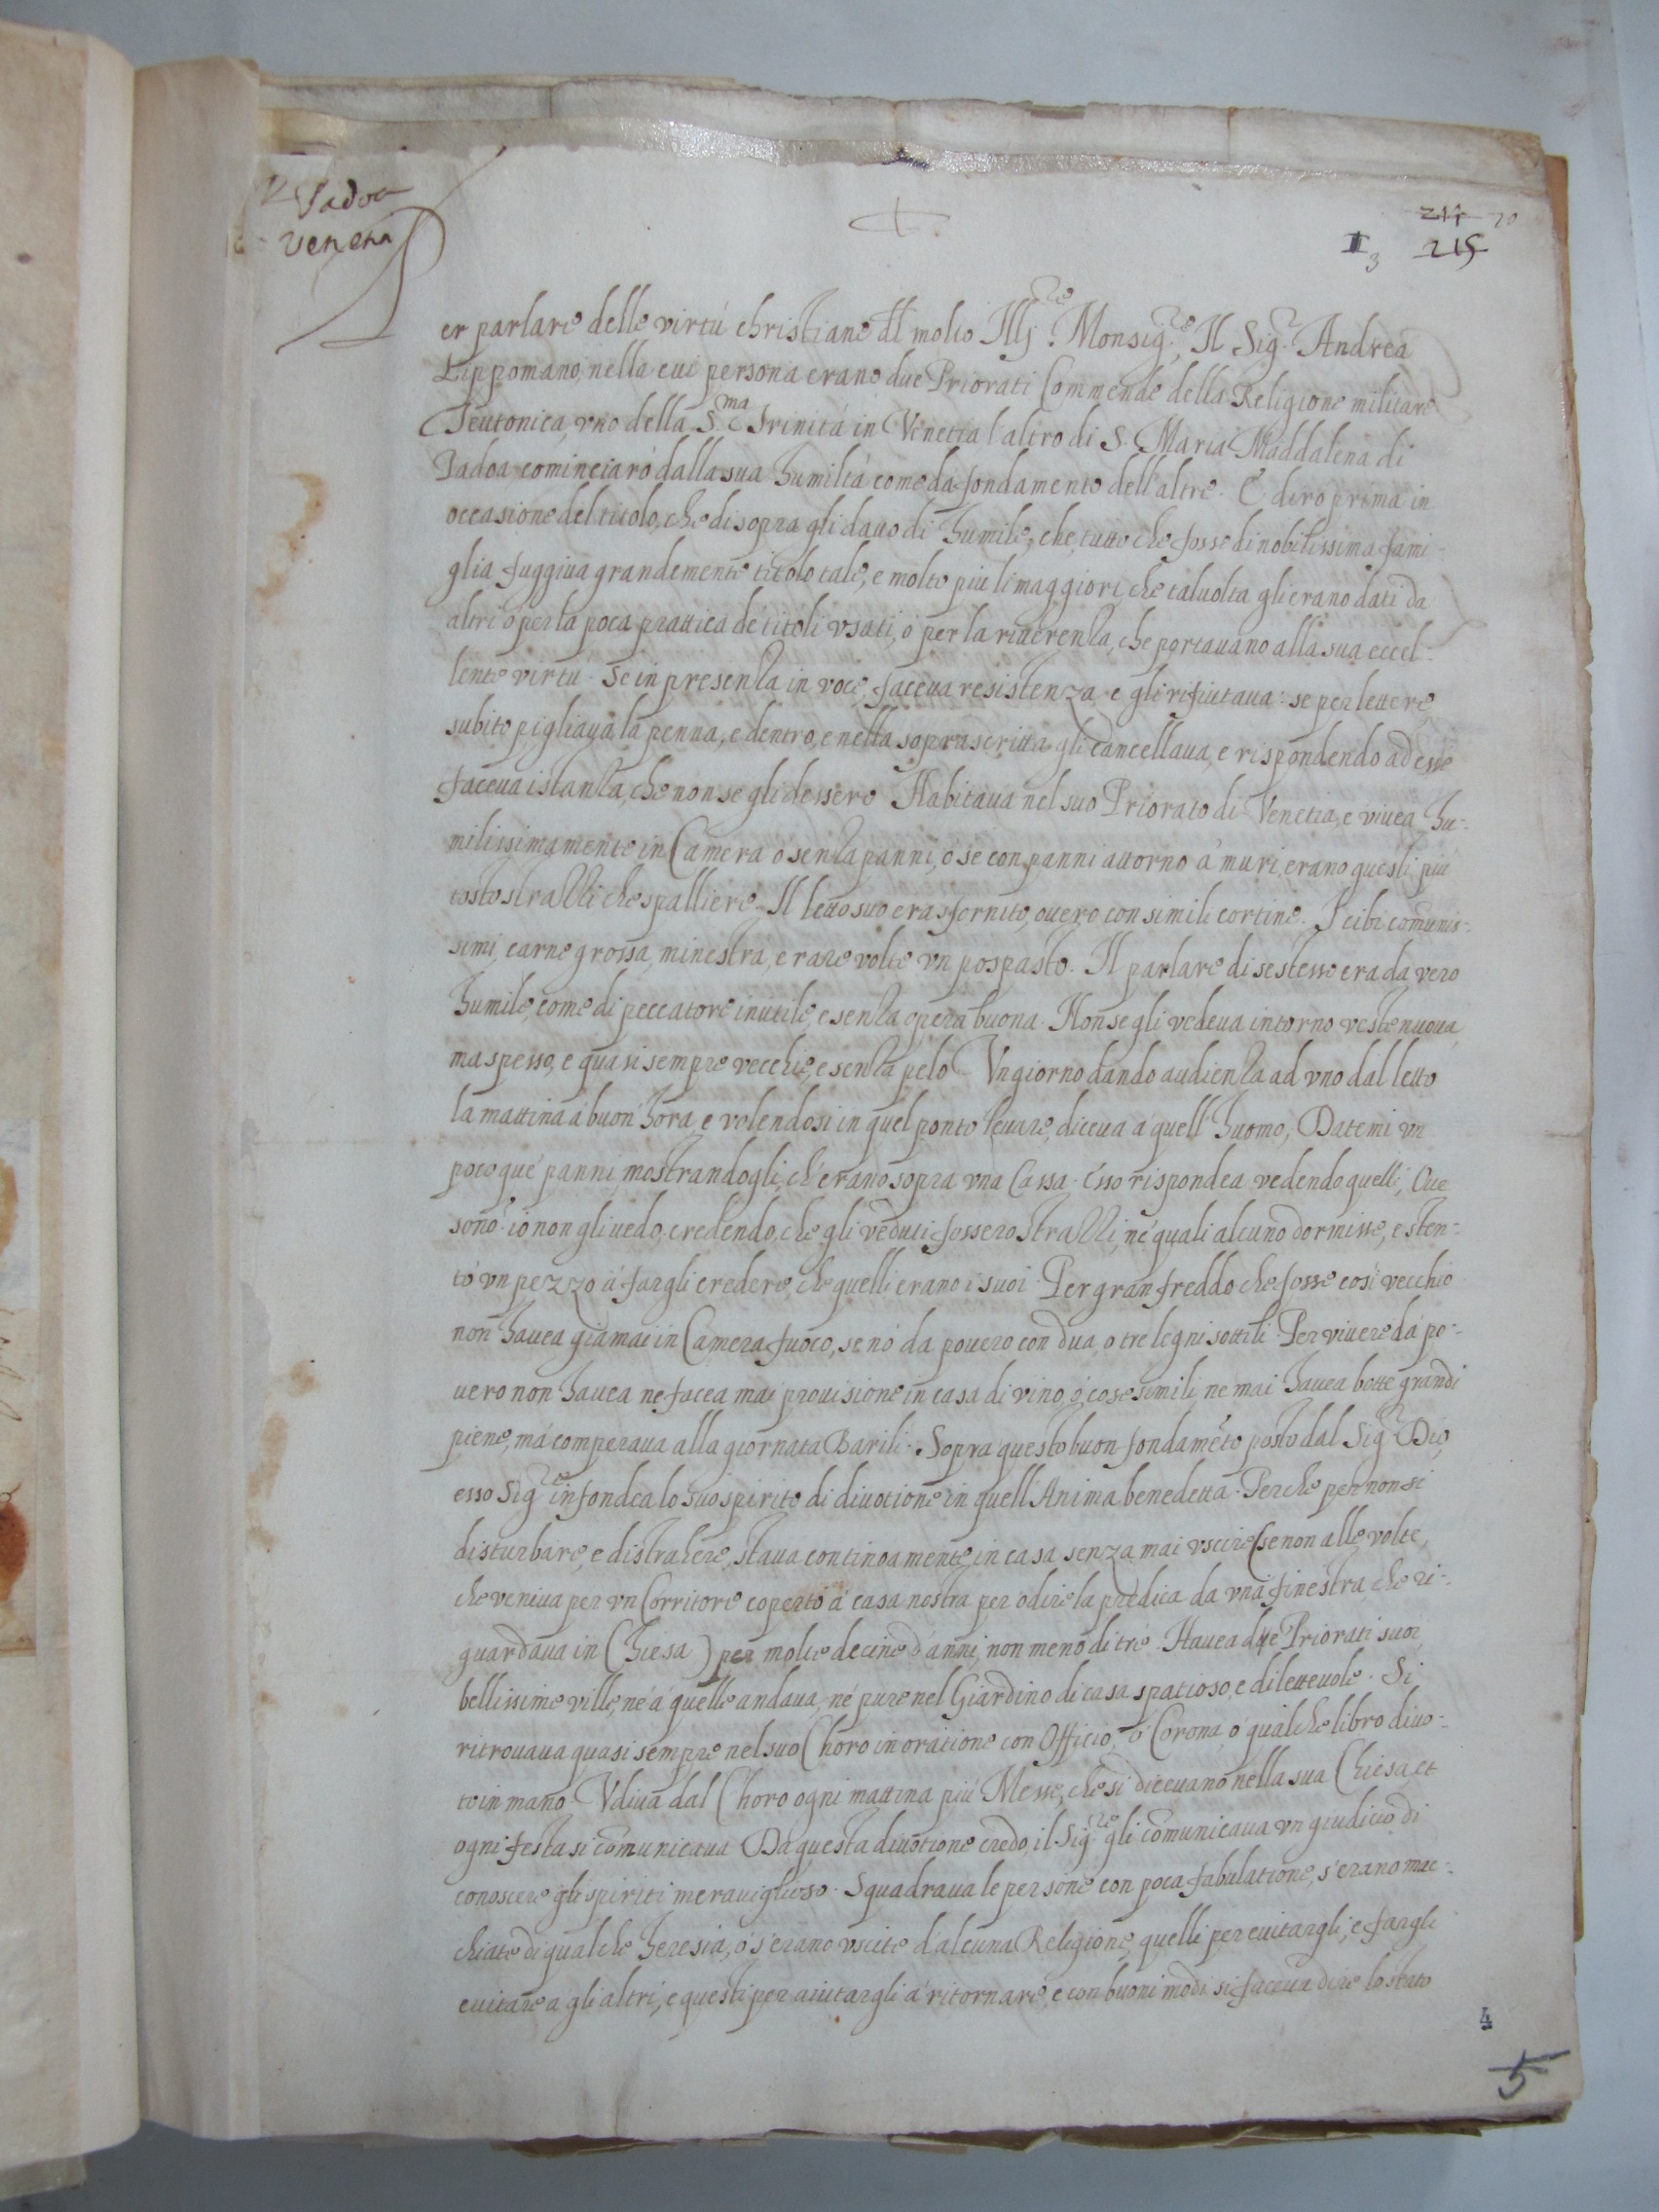 Padoa
Venetia
214 20
I 3 215
er parlare delle virtú christiane dl molto Ill.re Monsig.re, Il Sig.r Andrea
Lippomano, nella cui persona erano due Priorati Commende della Religione militare
Teutonica, vno della S.ma Trinitá in Venetia l'altro di S. Maria Maddalena di
Padoa cominciaró dalla sua humiltá come da fondamento dell'altre. E diro prima in
occasione del titolo, che di sopra gli dauo di humile, che, tutto che fosse di nobilissima fami-
glia fuggiua grandemente titolo tale, e molto piu li maggiori, che taluolta gli erano dati da
altri ó per la poca prattica de' titoli vsati, ó per la riuerenza, che portauano alla sua eccel:
lente virtú. Se in presenza in voce, faceua resistenza, e gli rifiutaua: se per lettere
subito pigliaua la penna, e dentro, e nella soprascritta gli cancellaua, e rispondendo ad esse
faceua istanza, che non se gli dessero. Habitaua nel suo Priorato di Venetia, e viuea hu-
milissimamente in Camera ó senza panni, ó se con panni attorno a' muri, erano questi piú
tosto strazzi che spalliere. Il letto suo era sfornito, ouero con simili cortine. I cibi comunis-
simi, carne grossa, minestra, e rare volte vn pospasto. Il parlare di se stesso era da vero
humile, come di peccatore inutile, e senza opera buona. Non se gli vedeua intorno veste nuoua
ma spesso, e quasi sempre vecchie, e senza pelo. Vn giorno dando audienza ad vno dal letto
la mattina á buon' hora, e volendosi in quel ponto leuare, diceua a quell'huomo, Datemi vn
poco que' panni, mostrandogli, ch'erano sopra vna Cassa. Esso rispondea vedendo quelli, Oue
sono? io non gli uedo, credendo, che gli veduti fossero strazzi, ne' quali alcuno dormisse, e sten-
tó vn pezzo á fargli credere, che quelli erano i suoi. Per gran freddo che fosse cosi vecchio
non hauea giamai in Camera fuoco, se nó da pouero con dua, o tre legni sottili. Per viuere da po-
uero non hauea ne facea mai prouisione in casa di vino, ó cose simili, ne mai hauea botte grandi
piene, má comperaua alla giornata Barili. Sopra questo buon fondamẽto posto dal Sig.r Dio,
esso Sig.re infondea lo suo spirito di diuotione in quell'Anima benedetta. Perche per non si
disturbare, e distrahere, staua continoamente in casa senza mai vscire (se non alle volte,
che veniua per vn Corritore coperto á casa nostra per odire la predica da vna finestra, che ri-
guardaua in Chiesa) per molte decine d'anni, non meno di tré. Hauea due Priorati suoi
bellissime ville, né á quelle andaua, né pure nel Giardino di casa spatioso, e dilettevole. Si
ritrouaua quasi sempre nel suo Choro in oratione con Officio, ó Corona, ó qualche libro diuo-
to in mano. Vdiua dal Choro ogni mattina piú Messe, che si diceuano nella sua Chiesa, et
ogni festa si comunicaua. Da questa diuotione credo, il Sig.re gli comunicaua vn giudicio di
conoscere gli spiriti merauiglioso. Squadraua le persone con poca fabulatione, s'erano mac-
chiate di qualche heresia, ó s'erano vscite d'alcuna Religione, quelli per euitargli, e fargli
euitare a gli altri, e questi per aiutargli á ritornare, e con buoni modi si faceua dire lo stato
4
5